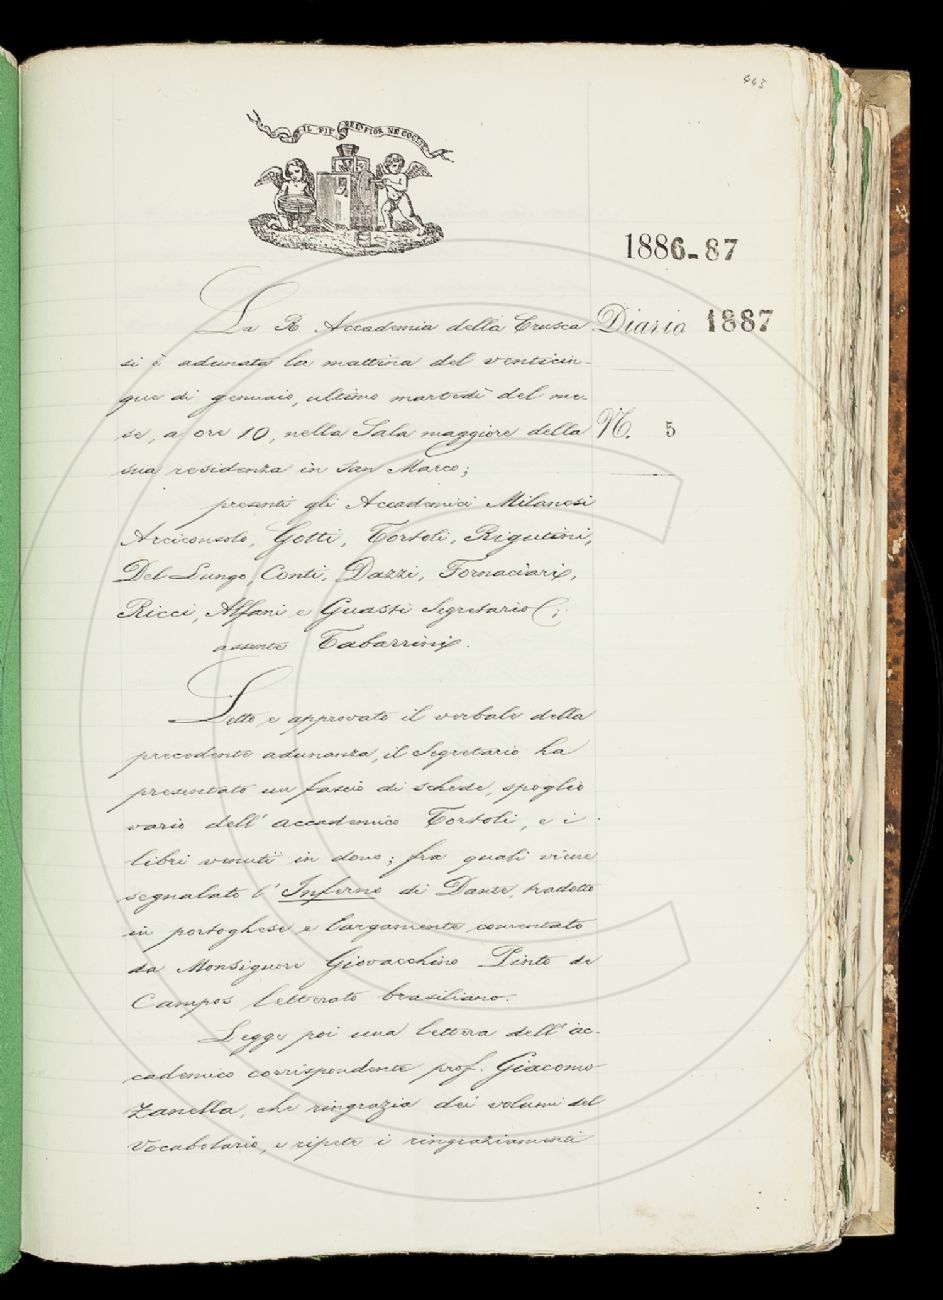 443
IL PIÙ BEL FIOR NE COGLIE
1886-87
La R. Accademia della Crusca
Diario 1887
si è adunata la mattina del venticin-
que di gennaio, ultimo martedì del me-
se, a ore 10, nella Sala maggiore della
N. 5
sua residenza in San Marco;
presenti gli Accademici Milanesi
Arciconsolo, Gotti, Tortoli, Rigutini,
Del Lungo, Conti, Dazzi, Fornaciari,
Ricci, Alfani e Guasti Segretario;
assente Tabarrini.
Letto e approvato il verbale della
precedente adunanza, il Segretario ha
presentato un fascio di schede, spoglio
vario dell'accademico Tortoli, e i
libri venuti in dono; fra quali viene
segnalato l'Inferno di Dante, tradotto
in portoghese e largamente comentato
da Monsignore Giovacchino Pinto de
Campos letterato brasiliano.
Legge poi una lettera dell'ac-
cademico corrispondente prof. Giacomo
Zanella, che ringrazia dei volumi del
Vocabolario, e ripete i ringraziamenti